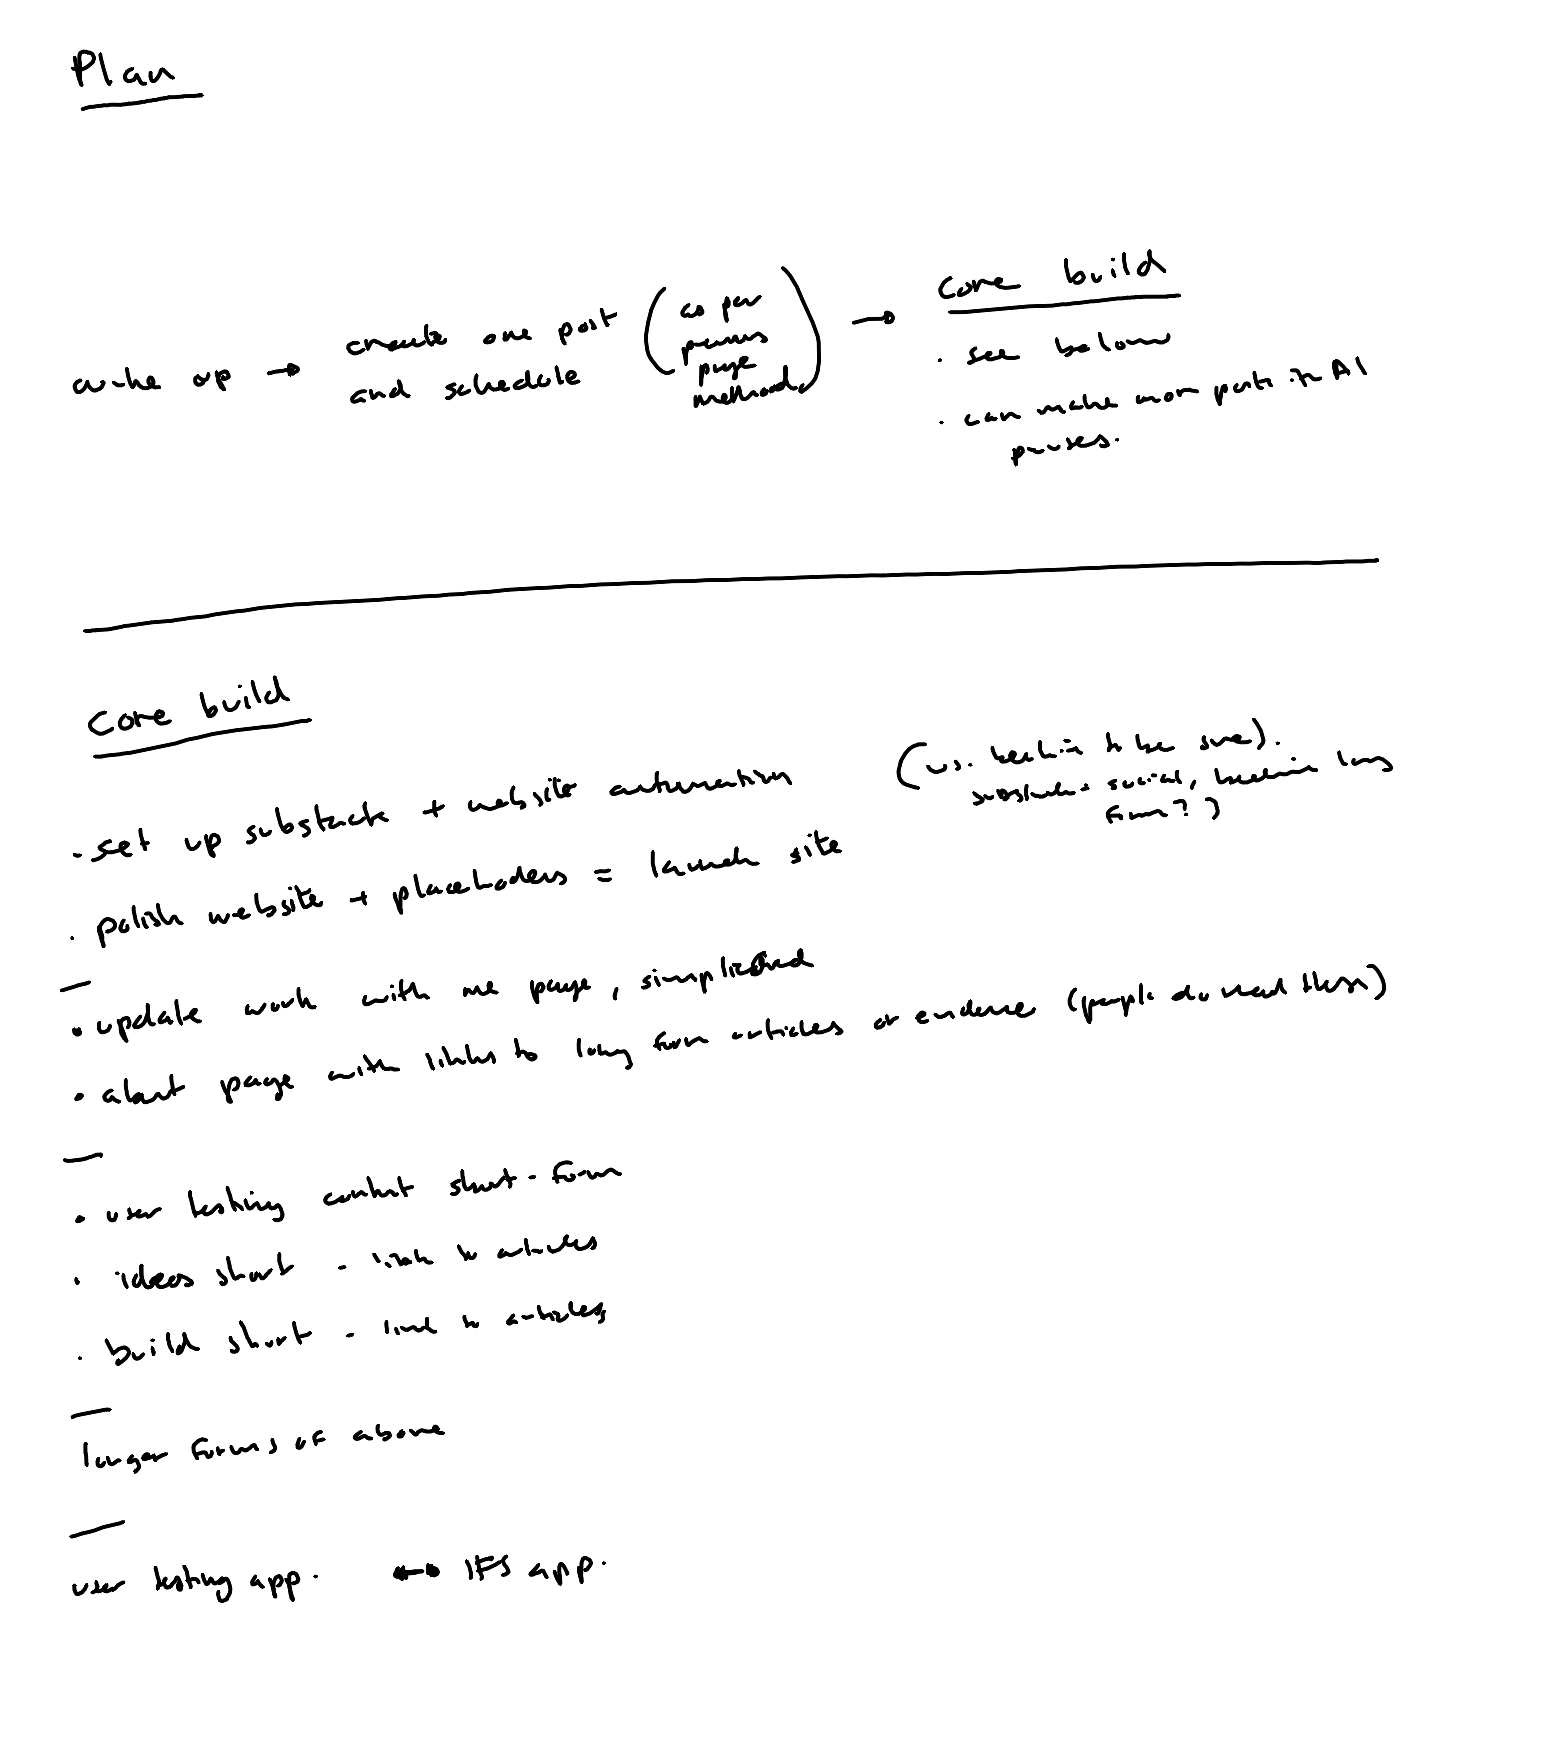 Plan
wake up → create one post
and schedule
(as per
page
method)
→ core build
· see below
· can make more posts in AI
pauses.
Core build
· set up substack + website automation
(vs. beehiiv to be sure).
substack social, beehiiv long
form?)
· polish website + placehoders = launch site
—
• update work with me page, simplified
• about page with links to long form articles or evidence (people do read them)
—
• user testing content short-form
· ideas short - link to articles
· build short - link to articles
—
longer forms of above
—
user testing app. ↔ IFS app.